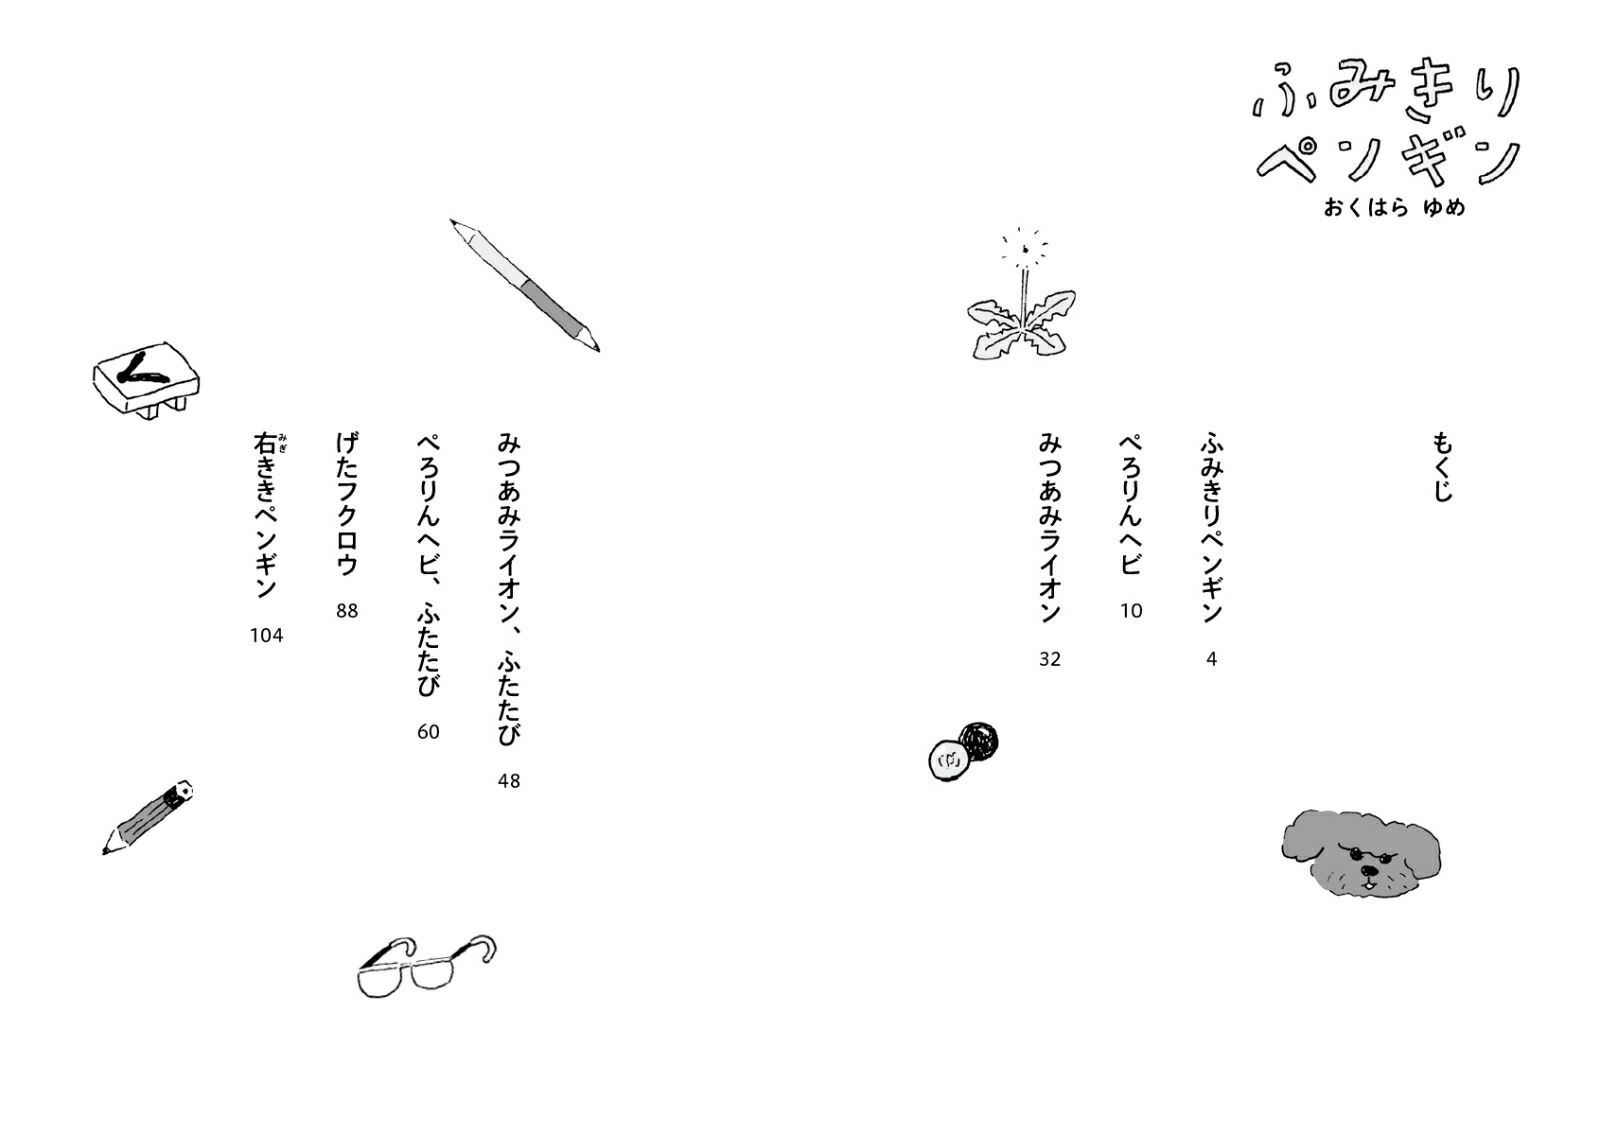 ふみきり
ペンギン
おくはら ゆめ
もくじ
ふみきりペンギン 4
ぺろりんヘビ 10
みつあみライオン 32
みつあみライオン、ふたたび 48
ぺろりんヘビ、ふたたび 60
げたフクロウ 88
右ききペンギン 104
みぎ